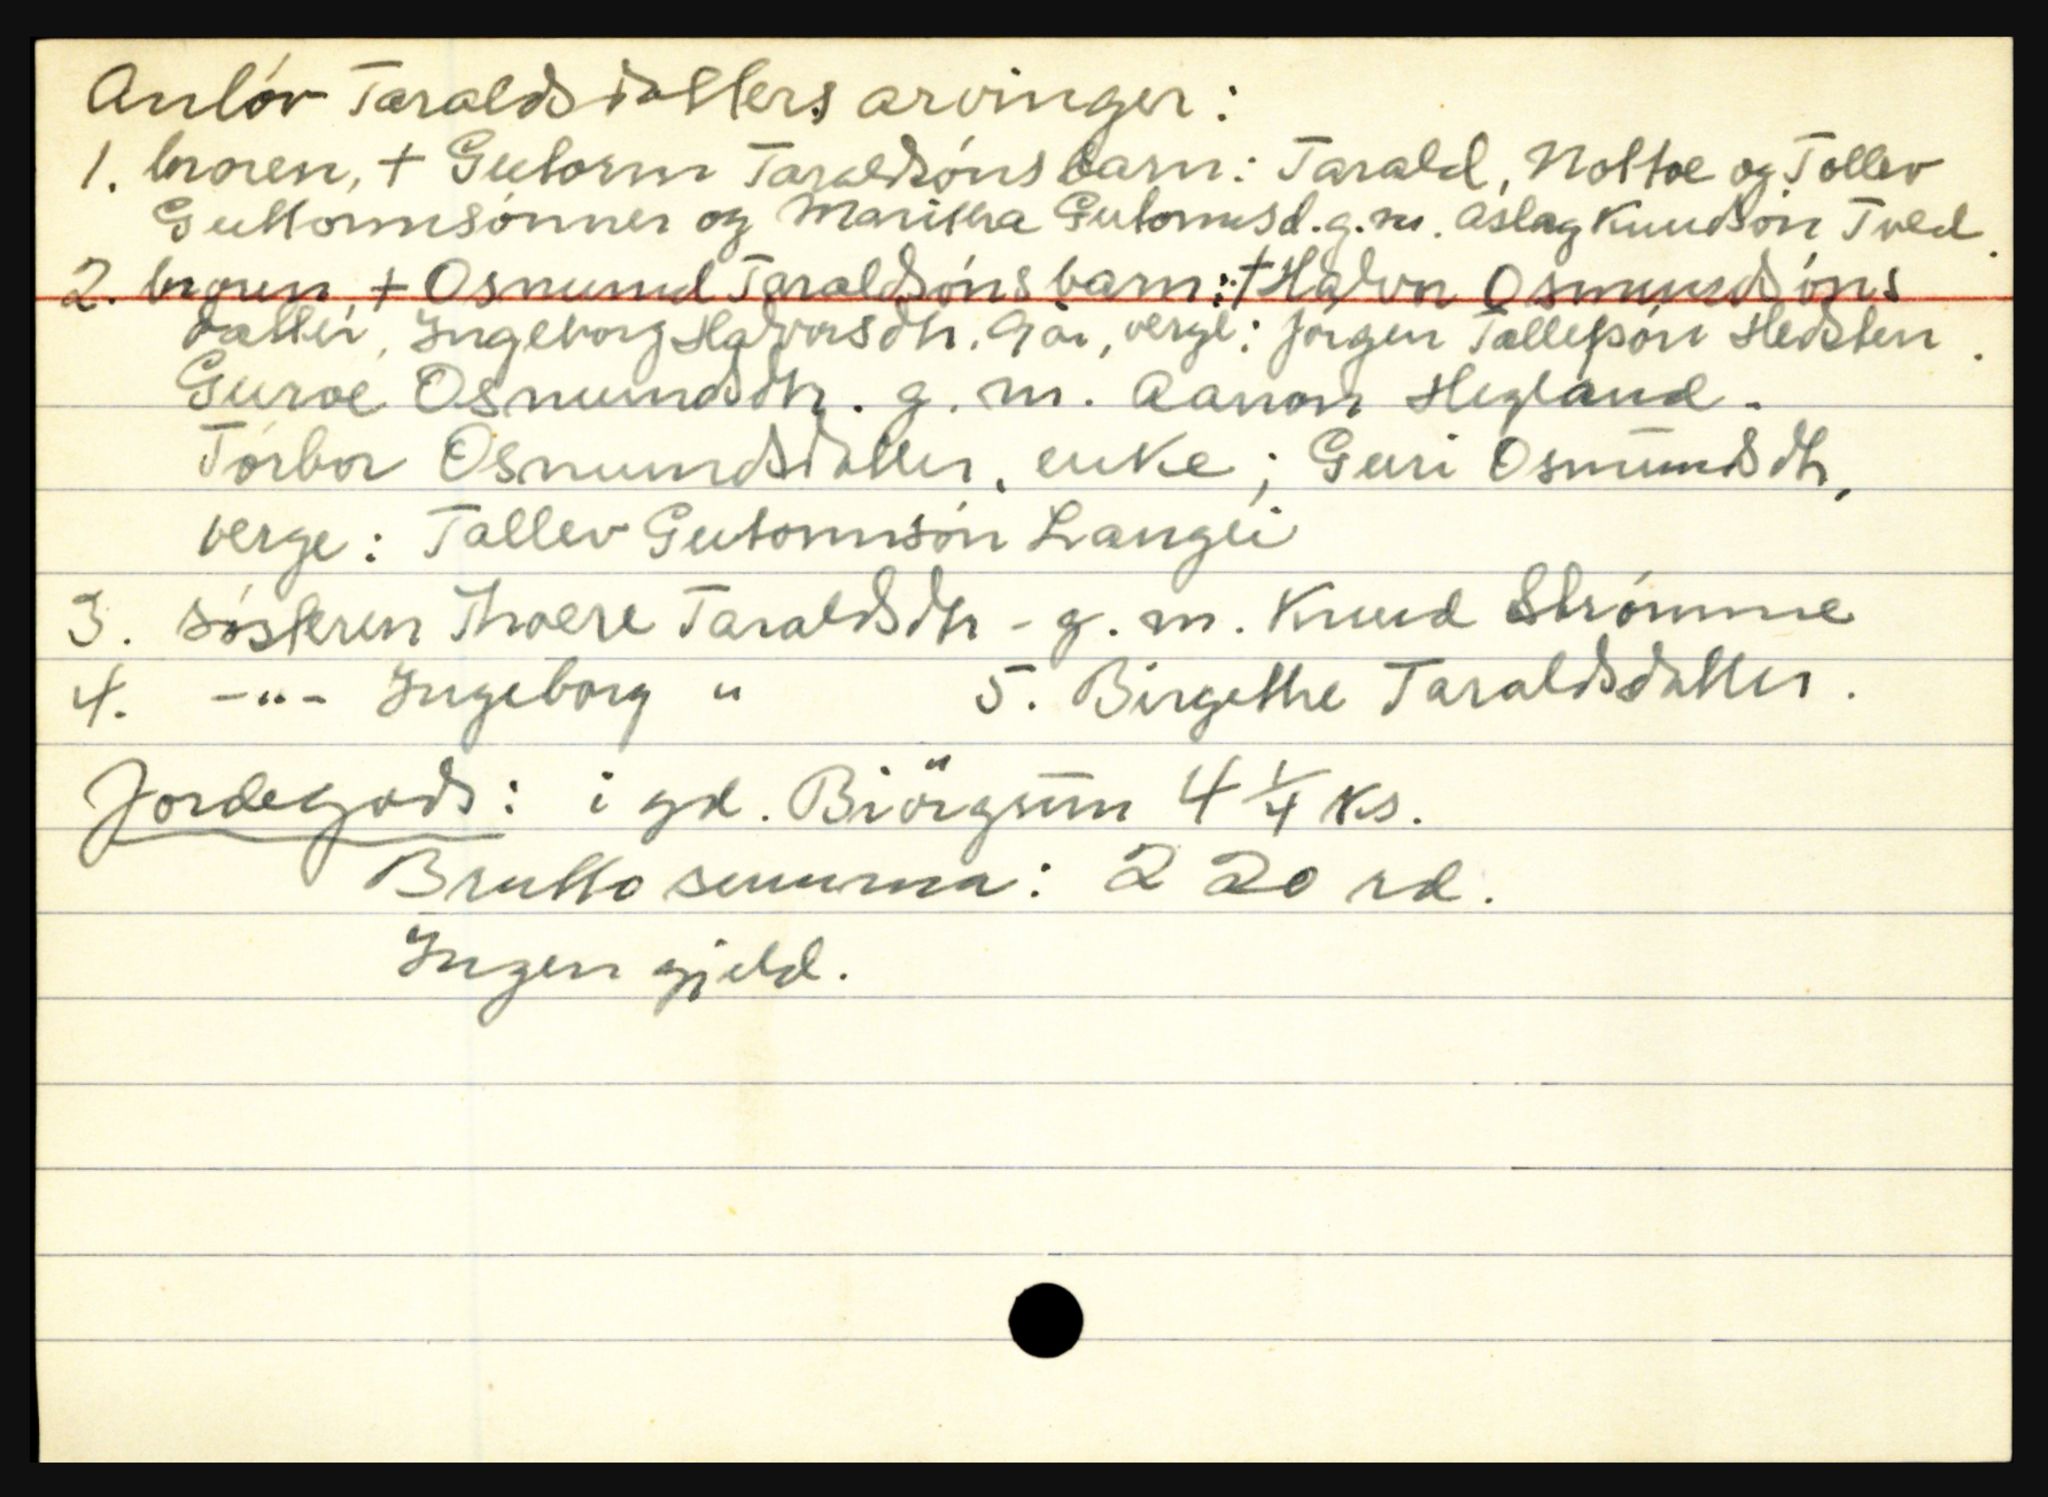 Anlóv Taraldsdatters arvinger:
1. broren, + Gutorm Taraldsóns barn: Tarald, Noltoe og Tollev
Guttormsónner og Maritha Gutormsd. g.m. Aslag Knudsón Tved.
2. broren, + Osmund Taraldsóns barn: † Halvor Osmundsóns
datter, Ingeborg Halvorsdtr. 9 år, verge: Jórgen Tallefsón Hedsten.
Guroe Osmundsdtr. g. m. Aanon Hegland.
Tórbor Osmundsdatter, enke; Guri Osmundsdtr,
verge: Tallev Gutormsón Langli
3. sósteren Thoere Taraldsdtr - g. m. Knud Strómme
4. -"- Ingeborg " 5. Birgethe Taraldsdatter.
Jordegods: i gd. Biörgum 4 1/4 ks.
Brutto summa: 220 rd.
Ingen gjeld.